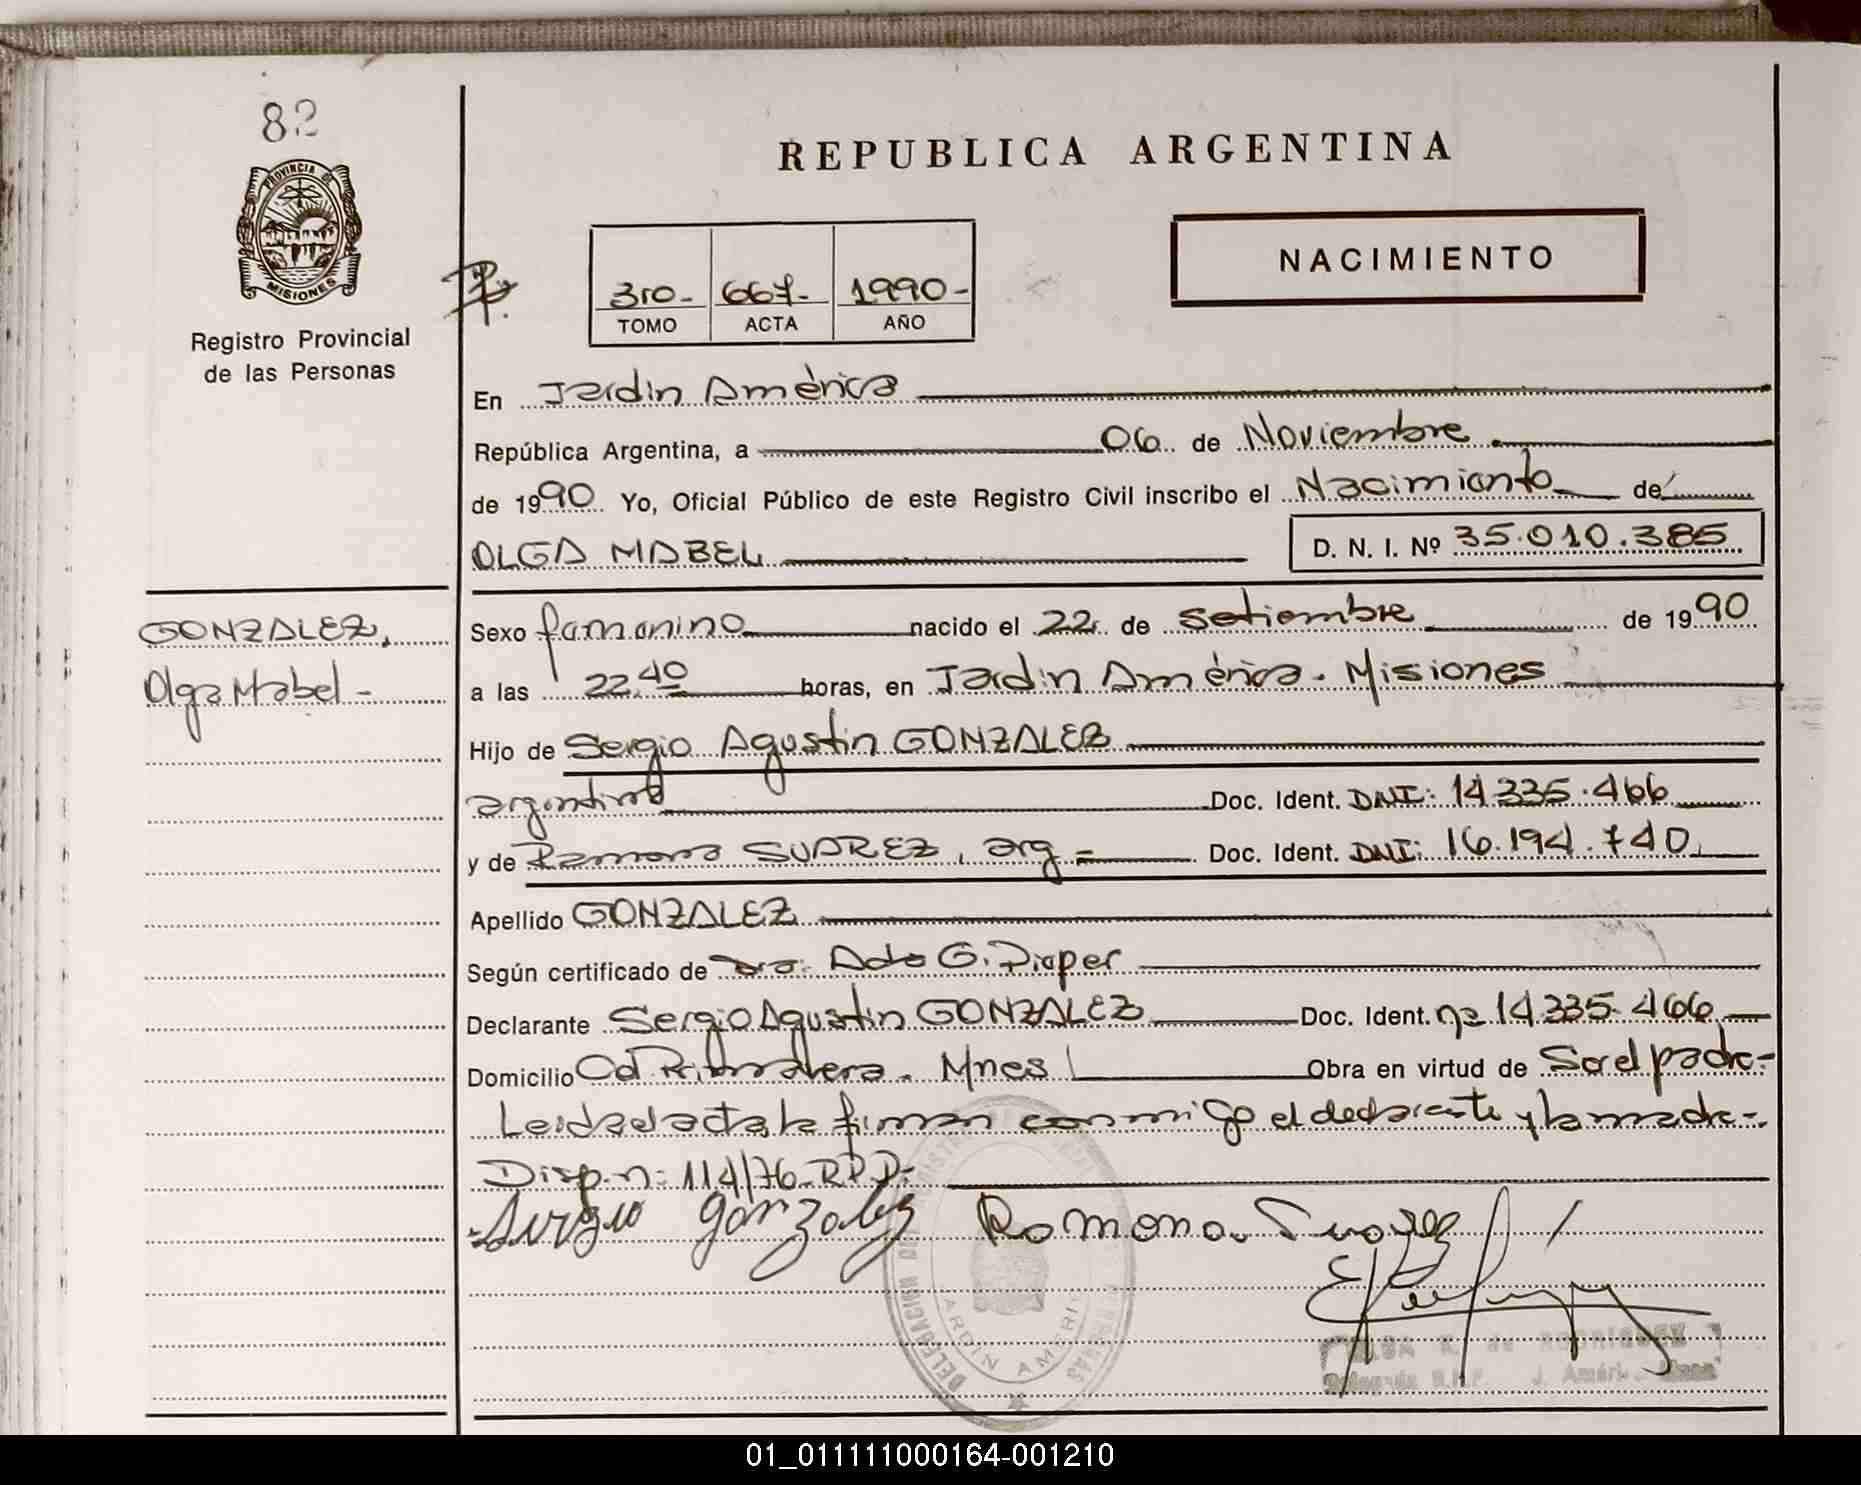 82
PROVINCIA DE
MISIONES
Registro Provincial
de las Personas
REPUBLICA ARGENTINA
NACIMIENTO
3ro- 667- 1990-
TOMO ACTA AÑO
En Jardin América
República Argentina, a 06 de Noviembre
de 1990 Yo, Oficial Público de este Registro Civil inscribo el Nacimiento de
OLGA MABEL D. N. I. Nº 35.010.385
GONZALEZ,
Olga Mabel -
Sexo femenino nacido el 22 de Setiembre de 1990
a las 22,40 horas, en Jardin América. Misiones
Hijo de Sergio Agustin GONZALEZ
argentino Doc. Ident. DNI: 14.335.466
y de Ramona SUAREZ, arg = Doc. Ident. DNI: 16.194.740
Apellido GONZALEZ
Según certificado de Dra. Ada G. Pieper
Declarante Sergio Agustin GONZALEZ Doc. Ident. nº 14.335.466
Domicilio Cd. Primavera. Mnes Obra en virtud de Ser el padre-
Leida el acta, la firman conmigo el declarante y la madre-.
Disp.n: 114/76-RPP.-
Sergio Gonzalez Ramona Suarez
DELEGACION
JARDIN AMERICA
K. de RODRIGUEZ
J. Améri
01_011111000164-001210